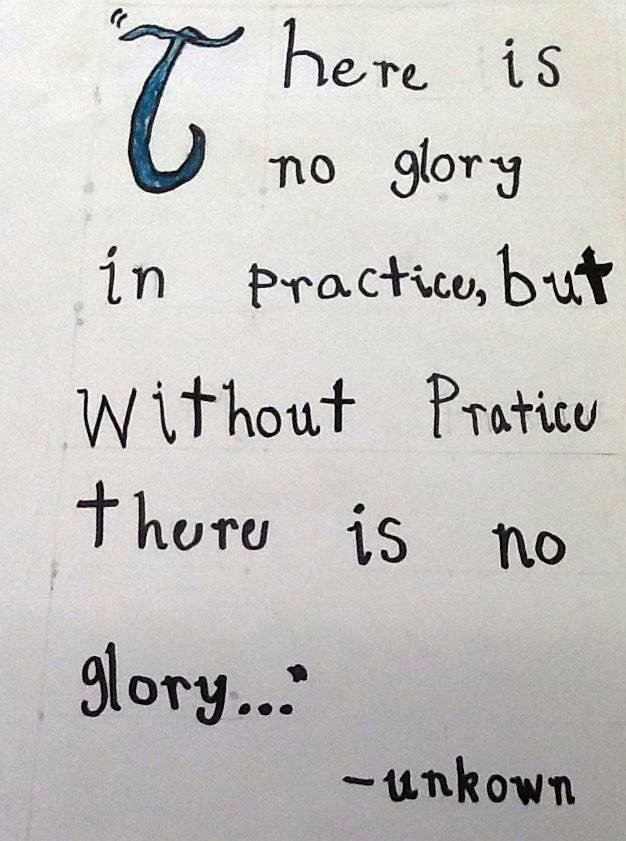 "There is
no glory
in practice, but
Without Pratice
there is no
glory..."
-unkown